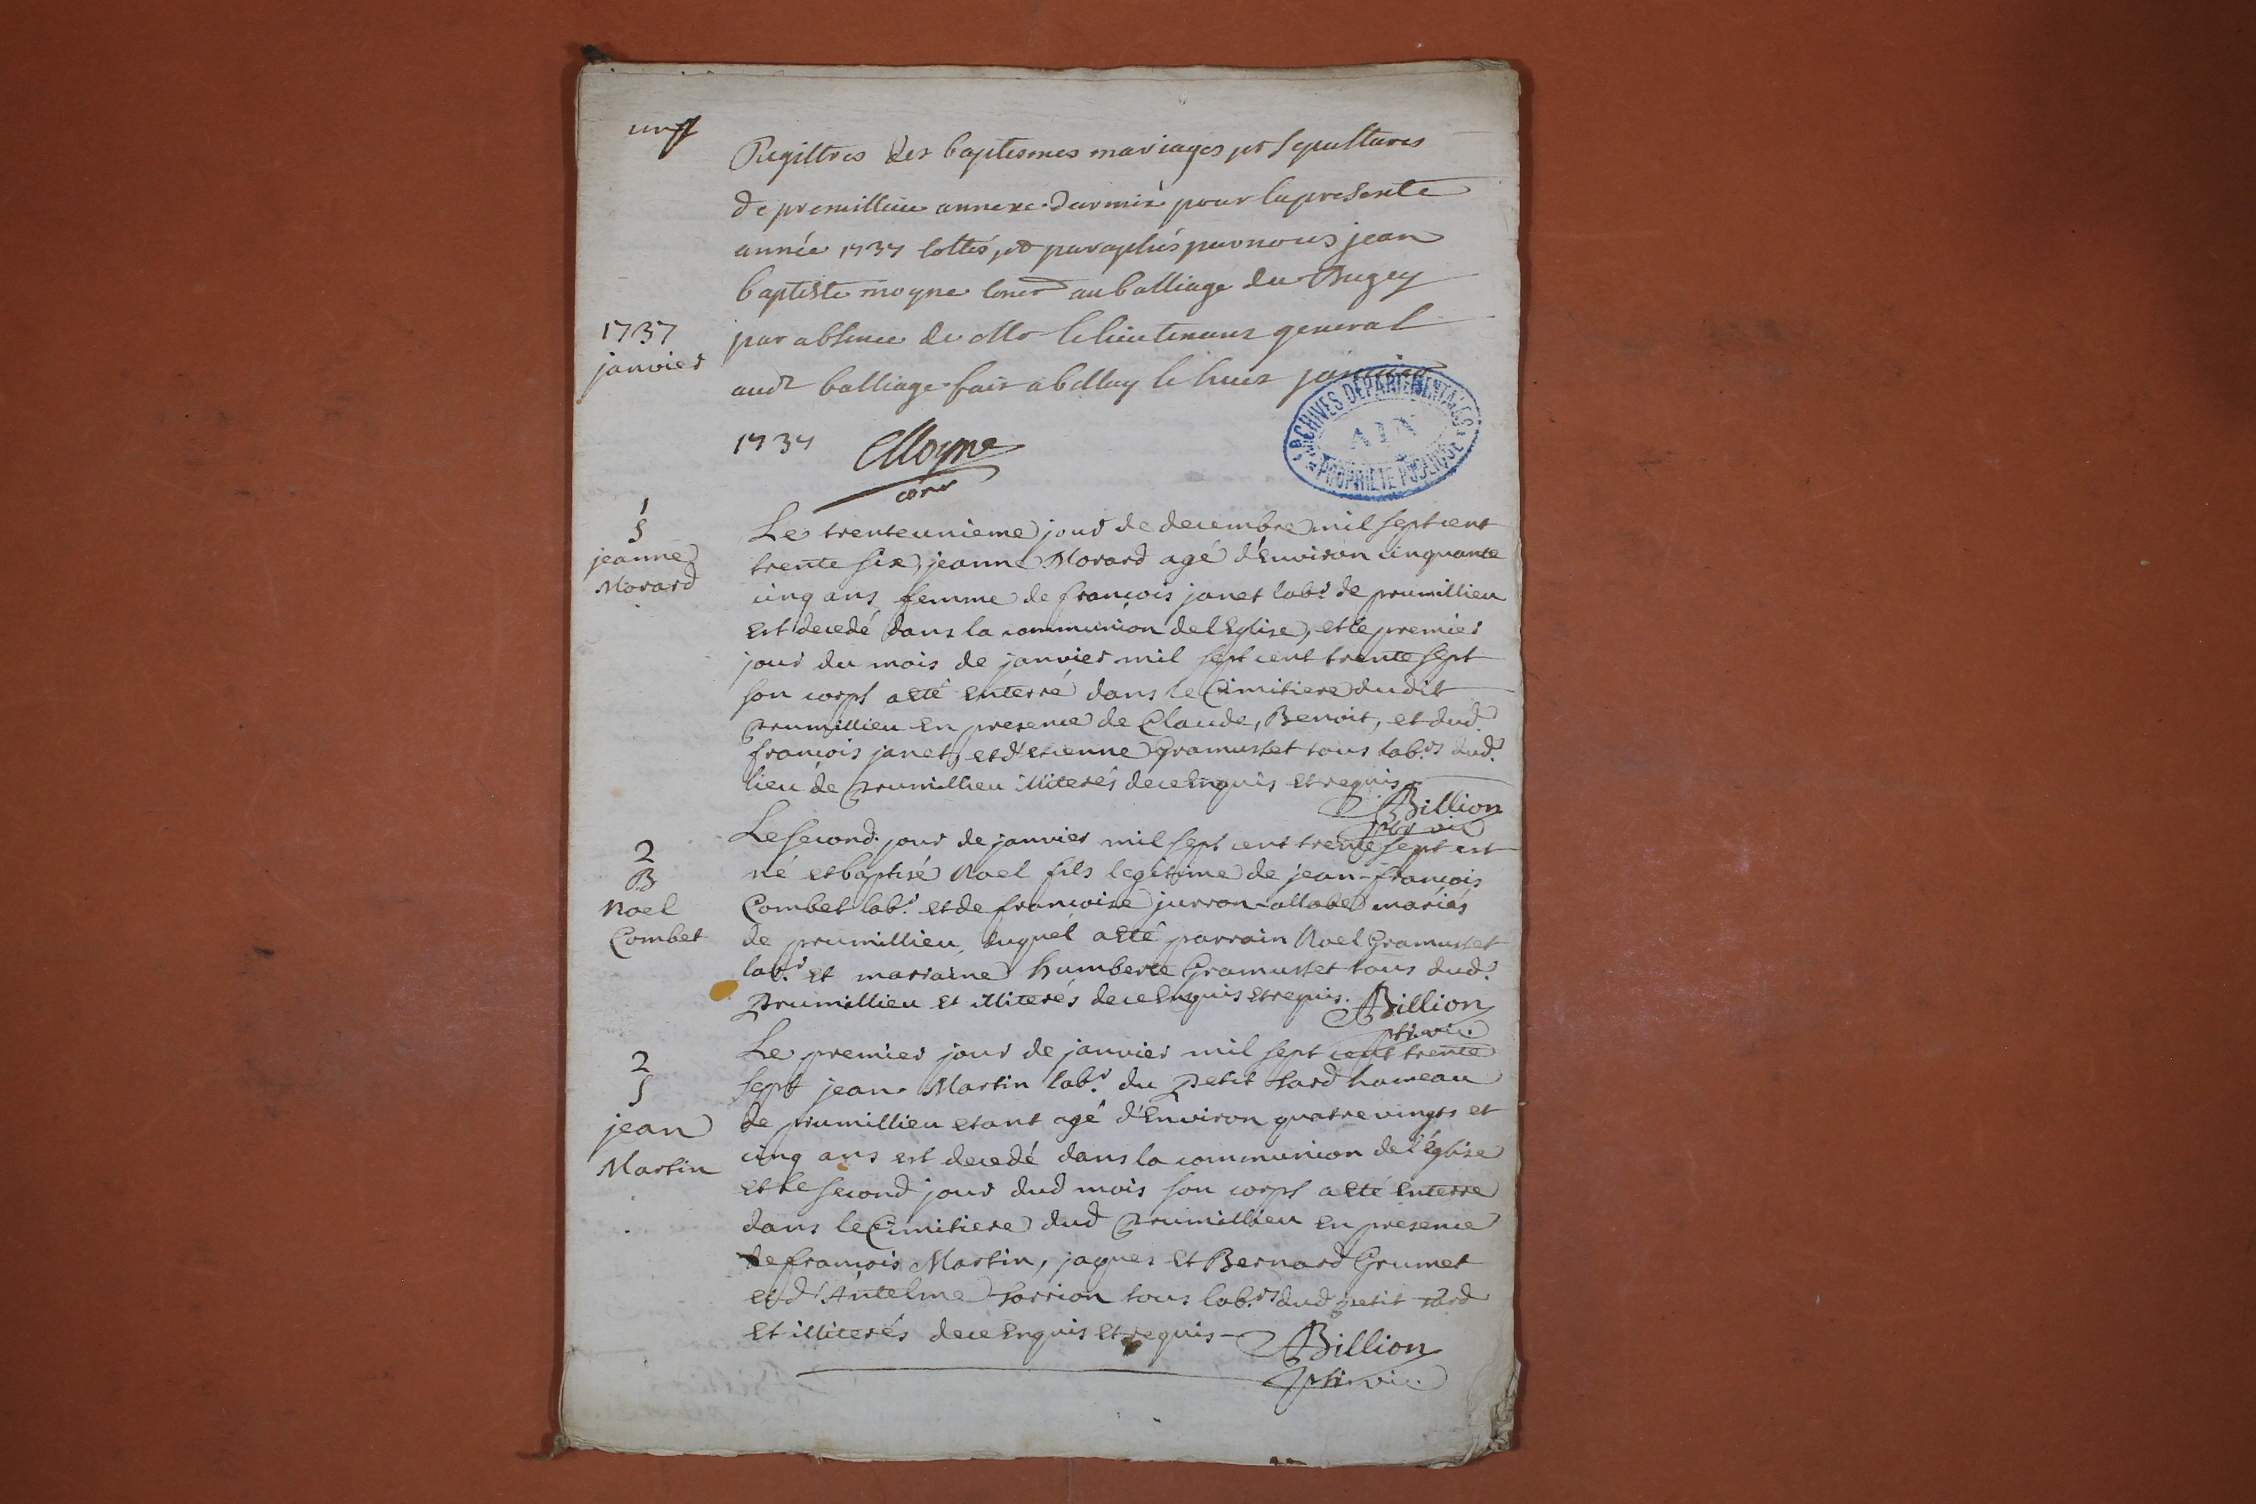 un
Registres des baptesmes mariages et sepultures
de premillieu annexe darmix pour la presente
année 1737 cottés et paraphés par nous jean
baptiste moyne coner au balliage du Bugey
1737
janvier
par absence de Mr le lieutenant general
audt balliage fait a bellay le huit janvier
1737 Moyne
coner
ARCHIVES DEPARTEMENTALES
AIN
PROPRIETE PUBLIQUE
1
S
jeanne
Morard
Le trenteunieme jour de decembre mil sept cent
trente six jeanne Morard agé d'Environ cinquante
cinq ans femme de francois janet labr. de prumillieu
est decedé dans la communion de l'Eglise, et le premier
jour du mois de janvier mil sept cent trente sept
son corps a eté enterré dans le Cimitiere dudit
prumillieu en presence de Claude, Benoit, et dud.
francois janet, et d'etienne Gramusset tous labrs. dud.
lieu de prumillieu illiterés de ce Enquis et requis.
Billion
ptr vic
2
B
Noel
Combet
Le second jour de janvier mil sept cent trente sept est
né et baptisé Noel fils legitime de jean-francois
Combet labr. et de francoise mariés
de prumillieu, duquel a eté parrain Noel Gramusset
labr. et maraine humberte Gramusset tous dud.
prumillieu et illiterés de ce Enquis et requis. Billion
ptr. vic.
2
S
jean
Martin
Le premier jour de janvier mil sept cent trente
sept jean Martin labr. du petit tard hameau
de prumillieu etant agé d'Environ quatre vingts et
cinq ans est decedé dans la communion de l'église
et le second jour dud mois son corps a eté enterré
dans le Cimitiere dud prumillieu en presence
de francois Martin, jaques et Bernard Grumet
et d'Antelme tous labrs. dud petit tard
et illiterés de ce Enquis et requis - Billion
ptr. vic.